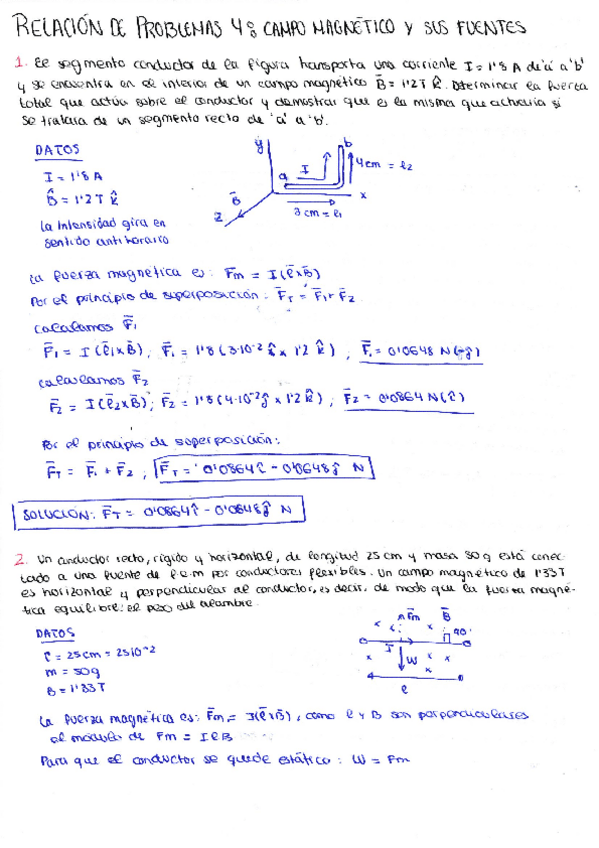 RELACIÓN DE PROBLEMAS 4: CAMPO MAGNÉTICO Y SUS FUENTES
1. El segmento conductor de la figura transporta una corriente I = 1'8 A de 'a' a 'b'
y se encuentra en el interior de un campo magnético B̄ = 1'2 T k̂. Determinar la fuerza
total que actúa sobre el conductor y demostrar que es la misma que actuaría si
se tratara de un segmento recto de 'a' a 'b'.
DATOS
I = 1'8 A
B̂ = 1'2 T k̂
La intensidad gira en
sentido antihorario
y
b
a
I
4cm = l2
x
B̄
z
3cm = l1
La fuerza magnética es: F̄m = I(l̄ x B̄)
Por el principio de superposición: F̄T = F̄1 + F̄2
Calculamos F̄1
F̄1 = I(l̄1 x B̄); F̄1 = 1'8(3·10⁻² î x 1'2 k̂), F̄1 = 0'0648 N(-ĵ)
Calculamos F̄2
F̄2 = I(l̄2 x B̄); F̄2 = 1'8(4·10⁻² ĵ x 1'2 k̂), F̄2 = 0'0864 N(î)
Por el principio de superposición:
F̄T = F̄1 + F̄2, F̄T = 0'0864 î - 0'0648 ĵ N
SOLUCIÓN: F̄T = 0'0864 î - 0'0648 ĵ N
2. Un conductor recto, rígido y horizontal, de longitud 25 cm y masa 50 g está conec-
tado a una fuente de f.e.m por conductores flexibles. Un campo magnético de 1'33 T
es horizontal y perpendicular al conductor, es decir, de modo que la fuerza magné-
tica equilibre el peso del alambre.
DATOS
l = 25cm = 25·10⁻²
m = 50g
B = 1'33T
F̄m
B̄
90°
I
W
l
La fuerza magnética es: F̄m = I(l̄ x B̄), como l y B son perpendiculares
el módulo de Fm = I l B
Para que el conductor se quede estático: W = Fm